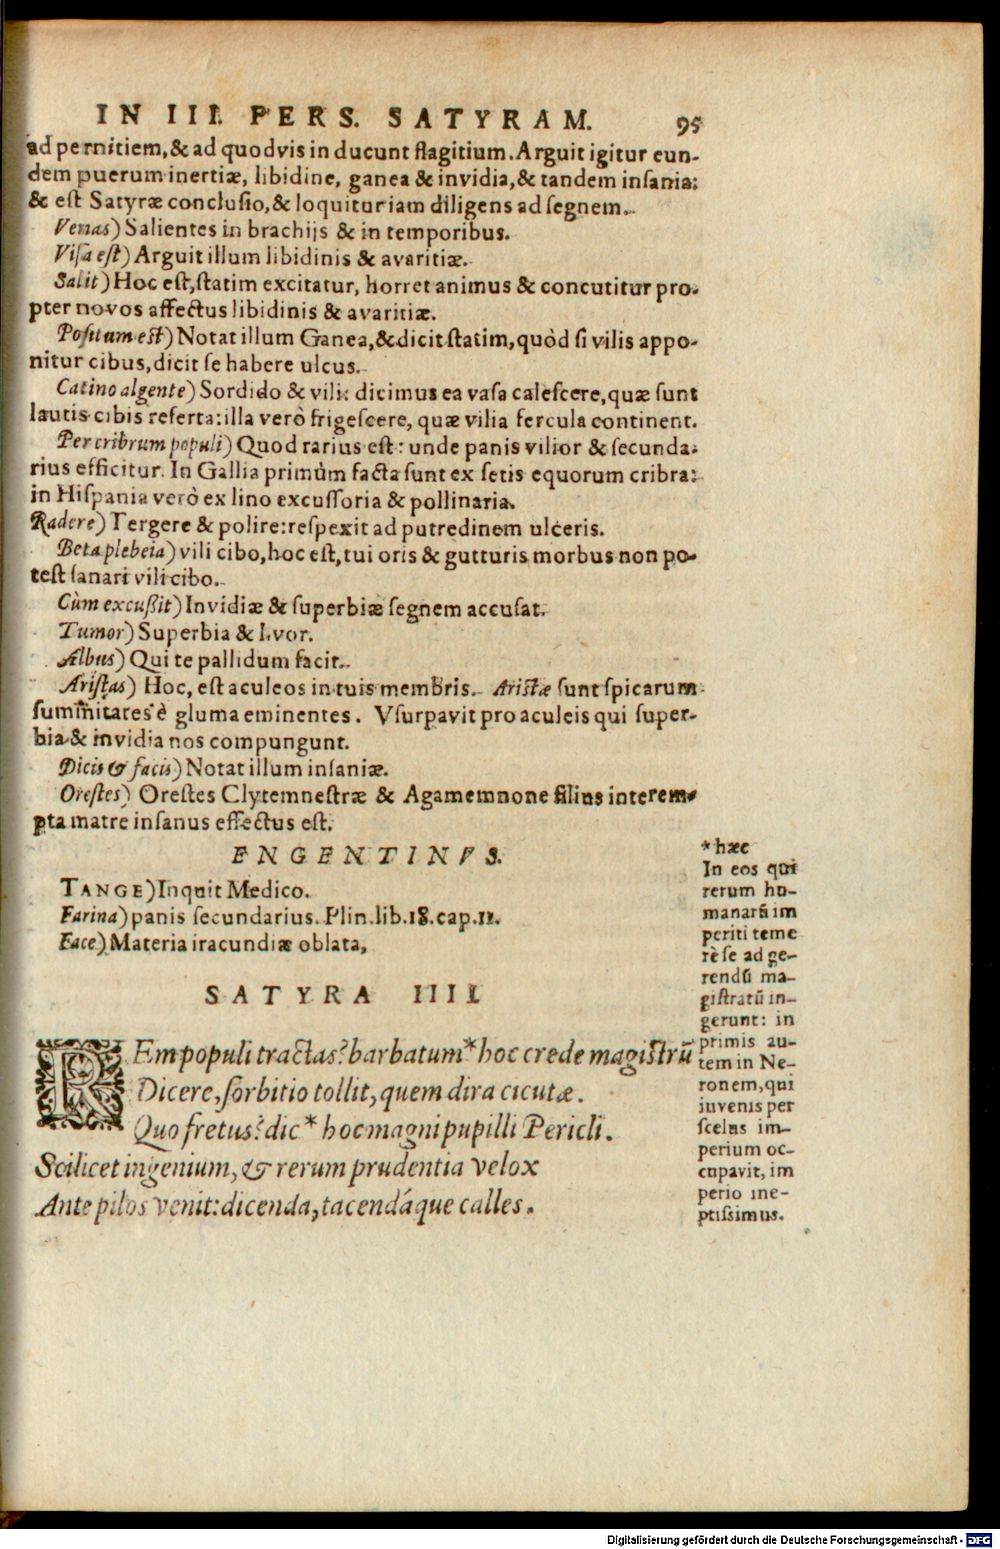 IN III. PERS. SATYRAM. 95
ad pernitiem, & ad quodvis in ducunt flagitium. Arguit igitur eun-
dem puerum inertiæ, libidine, ganea & invidia, & tandem insania:
& est Satyræ conclusio, & loquitur iam diligens ad segnem.
Venas) Salientes in brachijs & in temporibus.
Visa est) Arguit illum libidinis & avaritiæ.
Salit) Hoc est, statim excitatur, horret animus & concutitur pro-
pter novos affectus libidinis & avaritiæ.
Positum est) Notat illum Ganea, & dicit statim, quòd si vilis appo-
nitur cibus, dicit se habere ulcus.
Catino algente) Sordido & vili: dicimus ea vasa calescere, quæ sunt
lautis cibis referta: illa verò frigescere, quæ vilia fercula continent.
Per cribrum populi) Quod rarius est: unde panis vilior & secunda-
rius efficitur. In Gallia primùm facta sunt ex setis equorum cribra:
in Hispania verò ex lino excussoria & pollinaria.
Radere) Tergere & polire: respexit ad putredinem ulceris.
Beta plebeia) vili cibo, hoc est, tui oris & gutturis morbus non po-
test sanari vili cibo.
Cùm excußit) Invidiæ & superbiæ segnem accusat.
Tumor) Superbia & Lvor.
Albus) Qui te pallidum facit.
Aristas) Hoc, est aculeos in tuis membris. Aristæ sunt spicarum
summitates è gluma eminentes. Vsurpavit pro aculeis qui super-
bia & invidia nos compungunt.
Dicis & facis) Notat illum insaniæ.
Orestes) Orestes Clytemnestræ & Agamemnone filius interem-
pta matre insanus effectus est.
ENGENTINVS.
TANGE) Inquit Medico.
Farina) panis secundarius. Plin. lib. 18. cap. 11.
Face) Materia iracundiæ oblata,
SATYRA IIII.
REm populi tractas? barbatum* hoc crede magistrũ
Dicere, sorbitio tollit, quem dira cicutæ.
Quo fretus? dic* hoc magni pupilli Pericli.
Scilicet ingenium, & rerum prudentia velox
Ante pilos venit: dicenda, tacendáque calles.
*hæc
In eos qui
rerum hu-
manarũ im
periti teme
rè se ad ge-
rendũ ma-
gistratũ in-
gerunt: in
primis au-
tem in Ne-
ronem, qui
iuvenis per
scelus im-
perium oc-
cupavit, im
perio ine-
ptissimus.
Digitalisierung gefördert durch die Deutsche Forschungsgemeinschaft - DFG